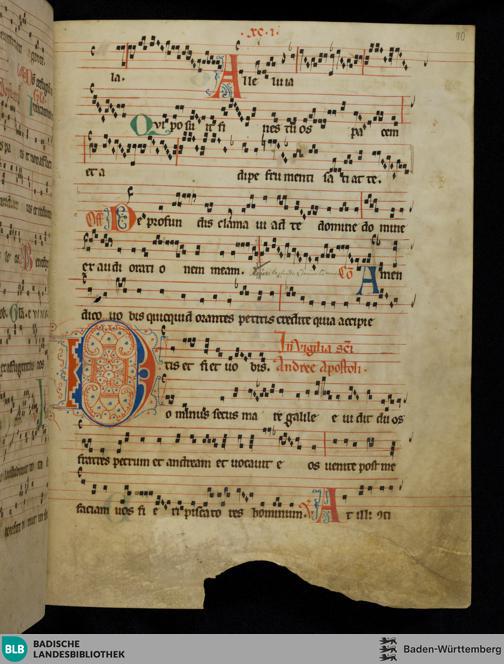 ·xc·i·
la. Alle luia
Qui posu it fi nes tu os pa cem
et a dipe frumenti sa ti at te.
Off De profun dis clama ui ad te domine do mine
exaudi orati o nem meam. Cō Amen
dico uo bis quicquid orantes petitis credite quia accipie
tis et fi et uo bis. In Vigilia sci
Andree apostoli.
Dominus secus ma re galile e ui dit du os
fratres petrum et andream et uocauit e os uenite post me
faciam uos fi e ri piscato res hominum. A
BLB BADISCHE
LANDESBIBLIOTHEK
Baden-Württemberg